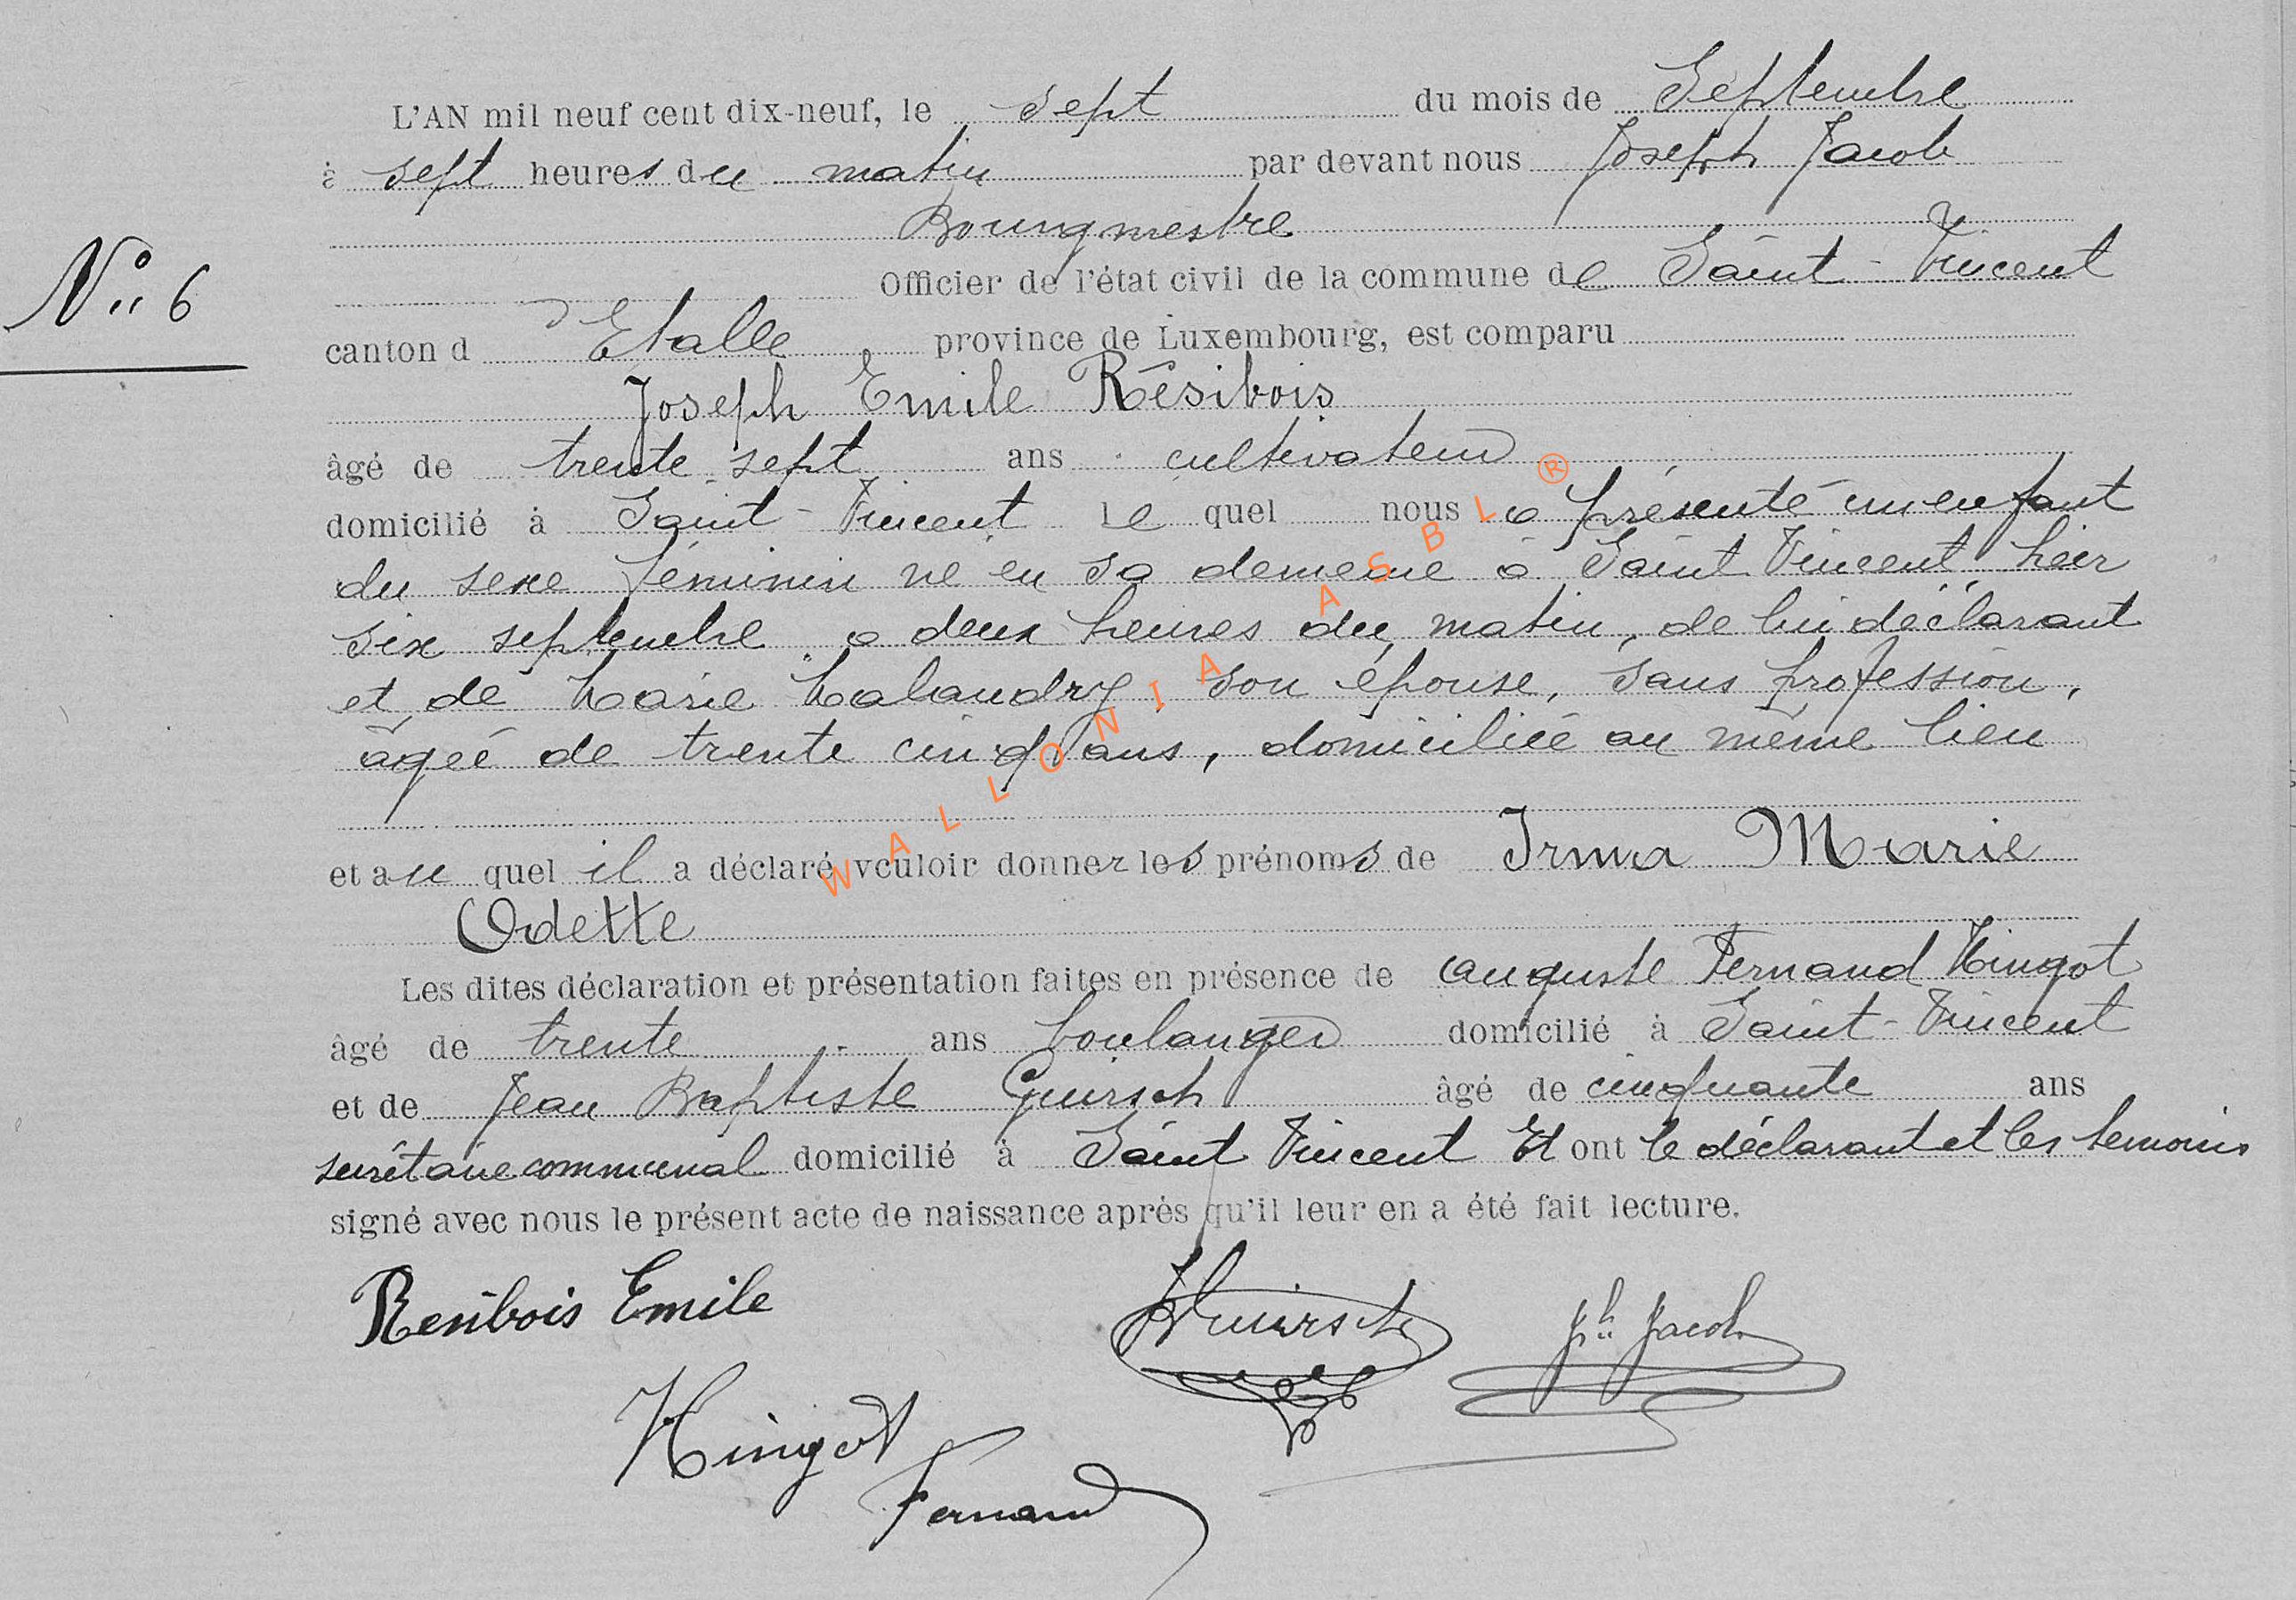 L'AN mil neuf cent dix-neuf, le sept du mois de Septembre
à sept heures du matin par devant nous Joseph Jacob
Bourgmestre
Officier de l'état civil de la commune de Saint-Vincent
N° 6
canton d'Etalle province de Luxembourg, est comparu
Joseph Emile Résibois
âgé de trente sept ans cultivateur
domicilié à Saint-Vincent le quel nous a présenté un enfant
du sexe féminin né en sa demeure à Saint Vincent, hier
six septembre à deux heures du matin, de lui déclarant
et de Marie Malaudry son épouse, sans profession,
âgée de trente cinq ans, domiciliée au même lieu
et au quel il a déclaré vouloir donner les prénoms de Irma Marie
Odette
Les dites déclaration et présentation faites en présence de Auguste Fernand Hingot
âgé de trente ans boulanger domicilié à Saint-Vincent
et de Jean Baptiste Guirsch âgé de cinquante ans
secrétaire communal domicilié à Saint Vincent Et ont le déclarant et les temoins
signé avec nous le présent acte de naissance après qu'il leur en a été fait lecture.
Resibois Emile
Guirsch
Jh Jacob
Hingot
Fernand
WALLONIA ASBL ®